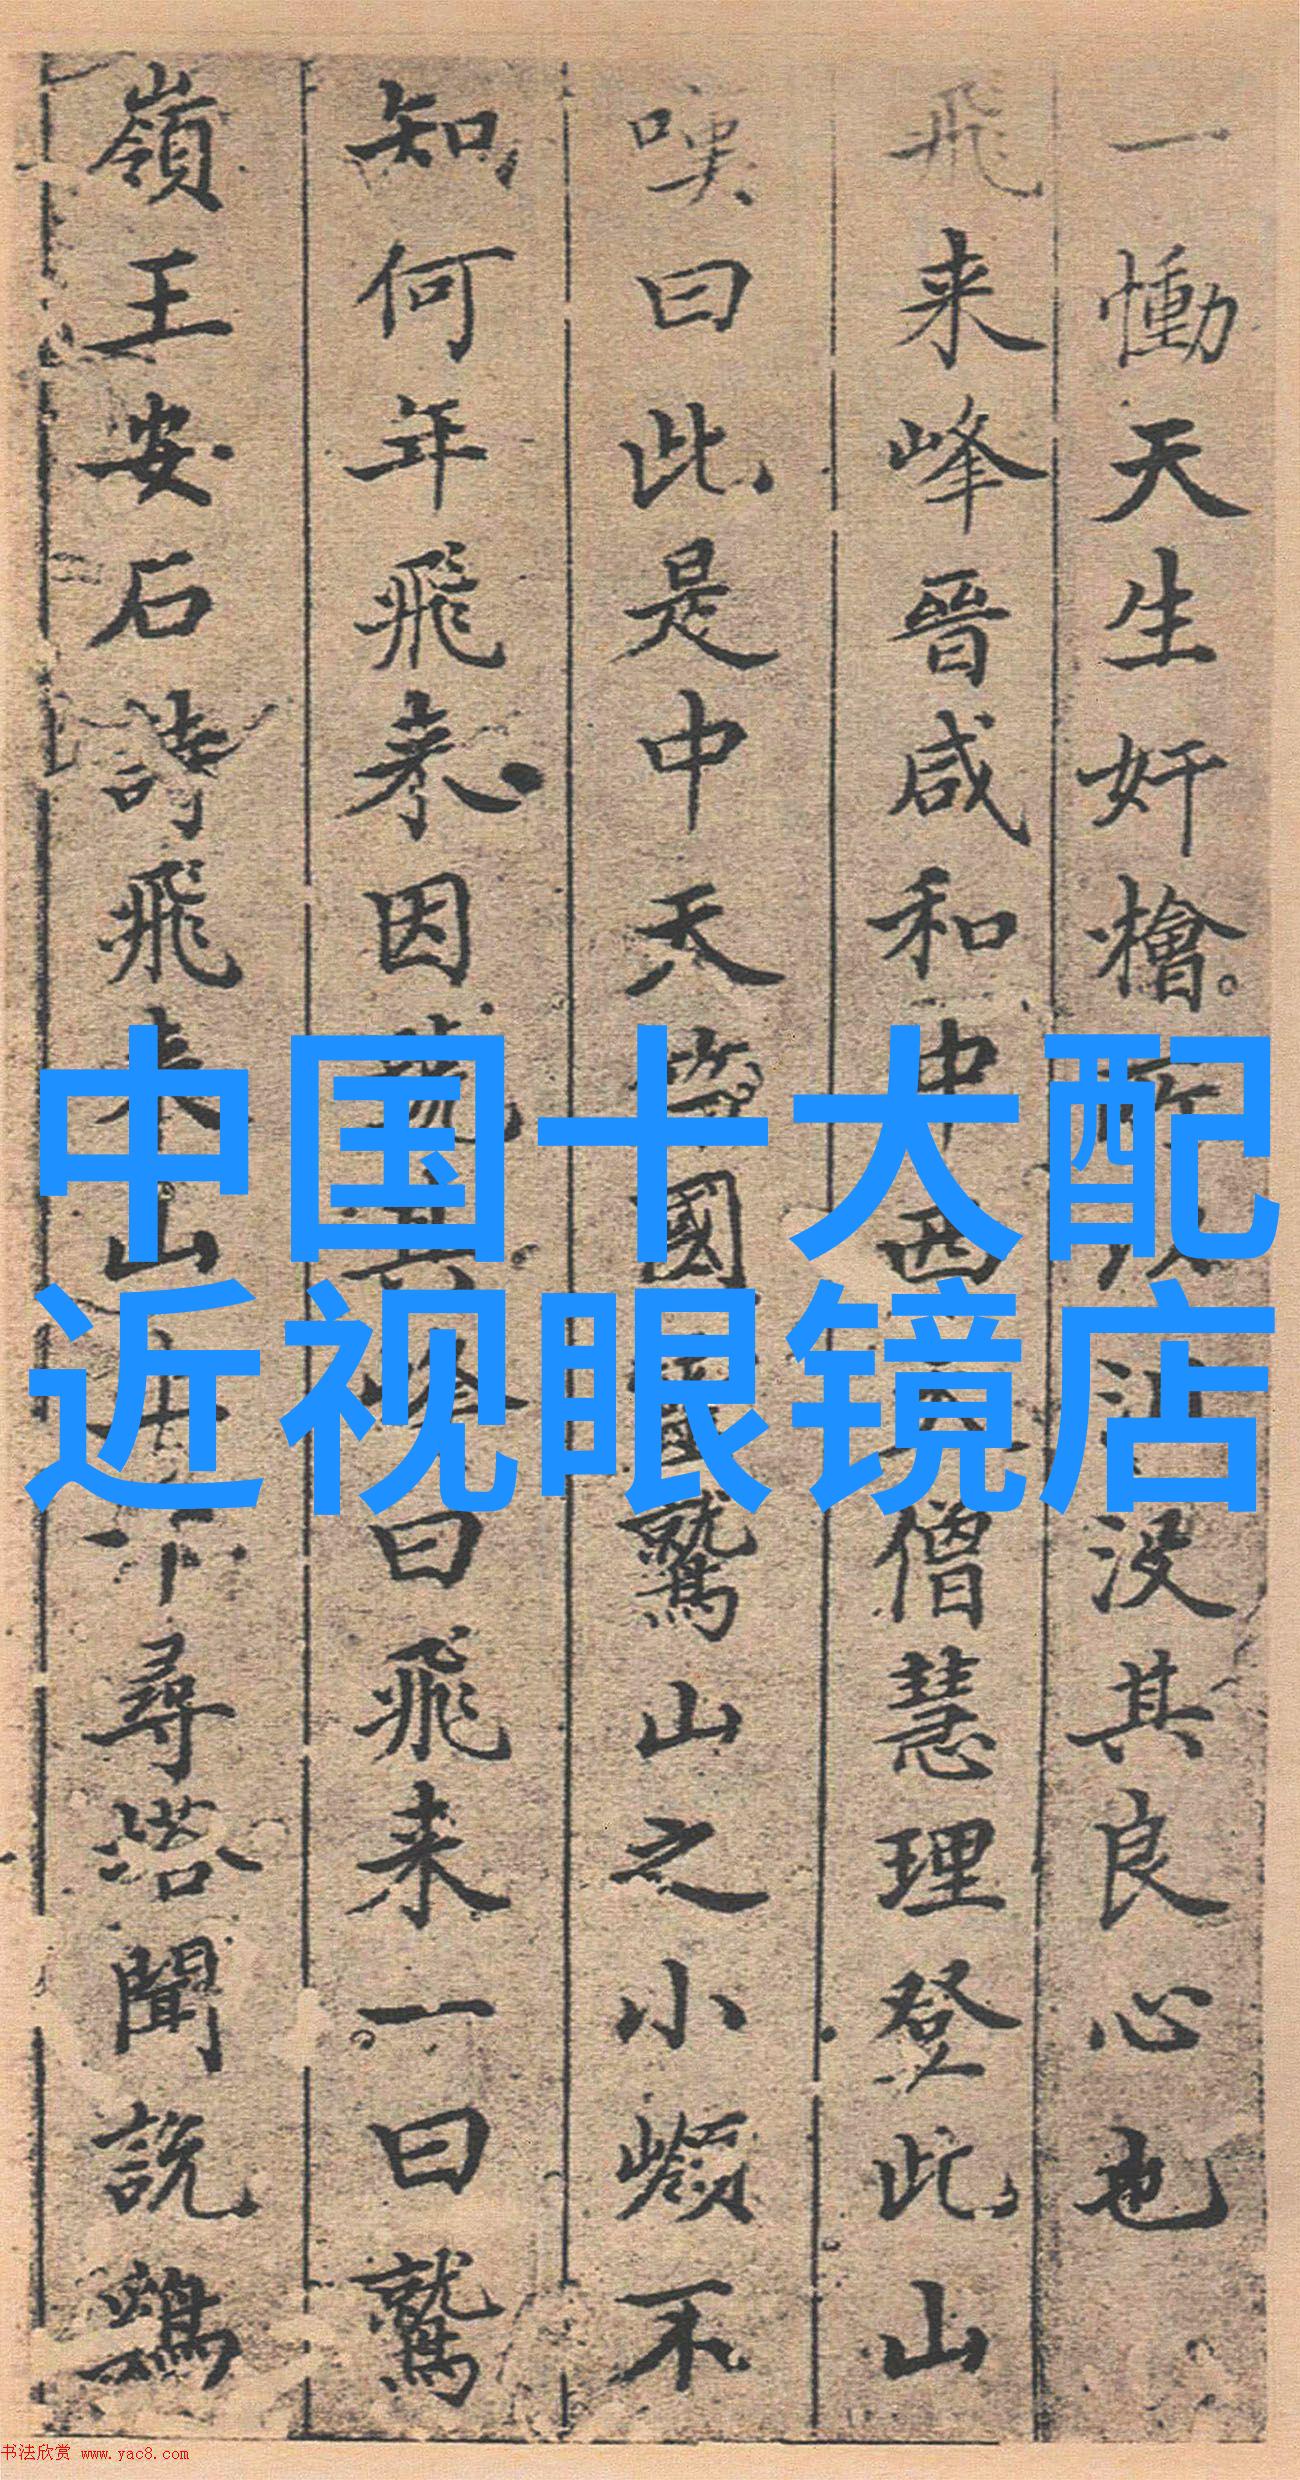 一慟天生奸檜
没其良心也
飛来峰晉咸和中西
僧慧理登此山
嘆曰此是中天
國
鷲山之小嶺不
知何年飛来因
曰飛来一曰鷲
嶺王安石詩飛来山
尋塔聞説鷄
中国十大配
近视眼镜店
书法欣赏 www.yac8.com